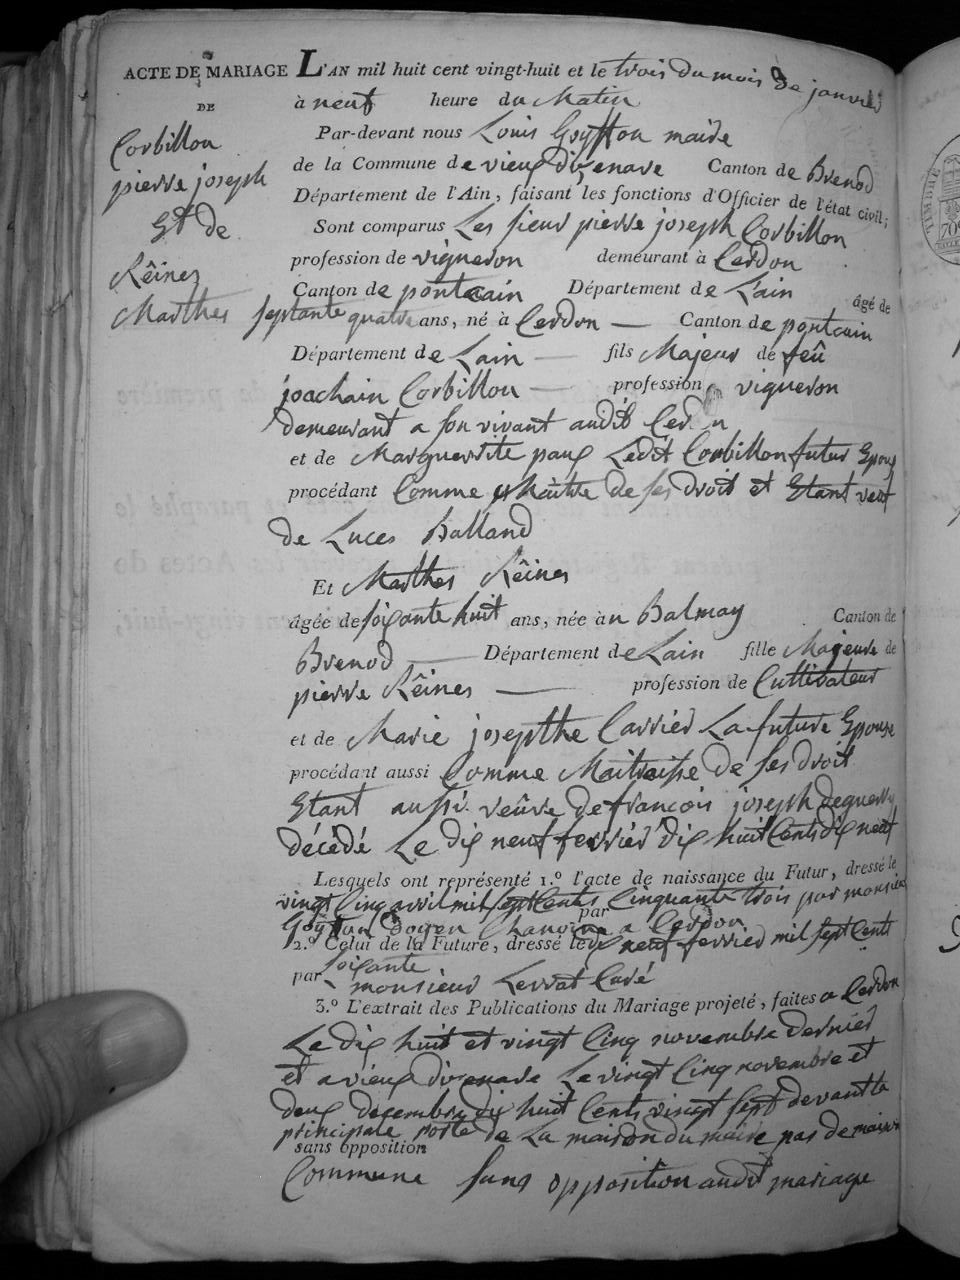 ACTE DE MARIAGE L'AN mil huit cent vingt-huit et le trois du mois de janvier
DE
Corbillon
pierre joseph
Et de
Rêines
Marthes
à neuf heure du Matin
Par-devant nous Louis Goyffon maire
de la Commune de vieux dizenave Canton de Brenod
Département de l'Ain, faisant les fonctions d'Officier de l'état civil;
Sont comparus Les sieur pierre joseph Corbillon
profession de vigneron demeurant à Cerdon
Canton de pontcain Département de Lain âgé de
septante quatre ans, né à Cerdon Canton de pontcain
Département de Lain fils Majeur de feû
joachain Corbillon profession vigneron
demeurant a son vivant audit Cerdon
et de Marguerite paux Ledit Corbillon futur Epoux
procédant Comme Maître de ses droit et Etant veuf
de Luces Balland
Et Marthes Rêines
âgée de soixante huit ans, née à n Balmay Canton de
Brenod Département de Lain fille Majeure de
pierre Rêines profession de Cultivateur
et de Marie josepthe Carrier La future Epouse
procédant aussi Comme Maitraisse de ses droit
Etant aussi veûve de francois joseph
décédé Le dix neuf ferrier dix huit Cents dix neuf
Lesquels ont représenté 1.º l'acte de naissance du Futur, dressé le
vingt Cinq avril mil sept Cents Cinquante trois par monsieur
par
doyen Chanoine a Cerdon
2.º Celui de la Future, dressé le dix neuf ferrier mil sept Cents
soixante
par monsieur Curé
3.º L'extrait des Publications du Mariage projeté, faites a Cerdon
Le dix huit et vingt Cinq novembre dernier
et a vieux dizenave Le vingt Cinq novembre et
deux décembre dix huit Cents vingt sept devant la
principale porte de La maison du maire pas de maison
sans opposition
Commune sans opposition audit mariage
TIMBRE